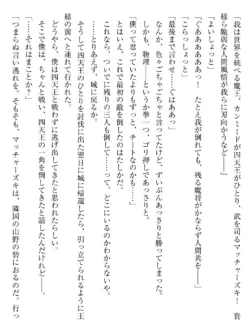 「我は世界を統べる魔王、カシミール四天王がひとり、武を司るマッチャーズキ！　貴
様ら脆弱なる人間風情が我らに刃向かうなど――」
「よいしょーっ」
「ぐああああああっ！」
「ちょらっしょっと」
「ぐああああああっ！　たとえ我が倒れても、残る魔将がかならず人間共を――」
「最後まで言わせ――ぐはあっ」
　なんか、色々ごちゃごちゃと言ってたけど、ずいぶんあっさりと倒せた。
　しかも、物理――というか拳一つ、ゴリ押しであっさりと。
「僕って思っていた以上に、チートなのかも……」
　ともあれ、これで最初の敵を倒したのはたしか。
　もしかして次に残りの三人も倒しておいたほうがいいかな？
「……とりあえず、城に戻るか」
　そうして四天王のひとりを討伐に出た翌日に城に帰還した僕は、引っ立てられるように上
様の前へと連れてこられた。
　どうやら、僕は四天王と戦わずに逃げ出してきたと思われたらしい。
　そこで僕は、ちゃんと戦い、四天王の一角を倒してきたと話したんだけど――
「……それはまことか？」
「つまらぬ言い逃れを。そもそも、マッチャーズキは、隣国の山野の砦におるのだ。行